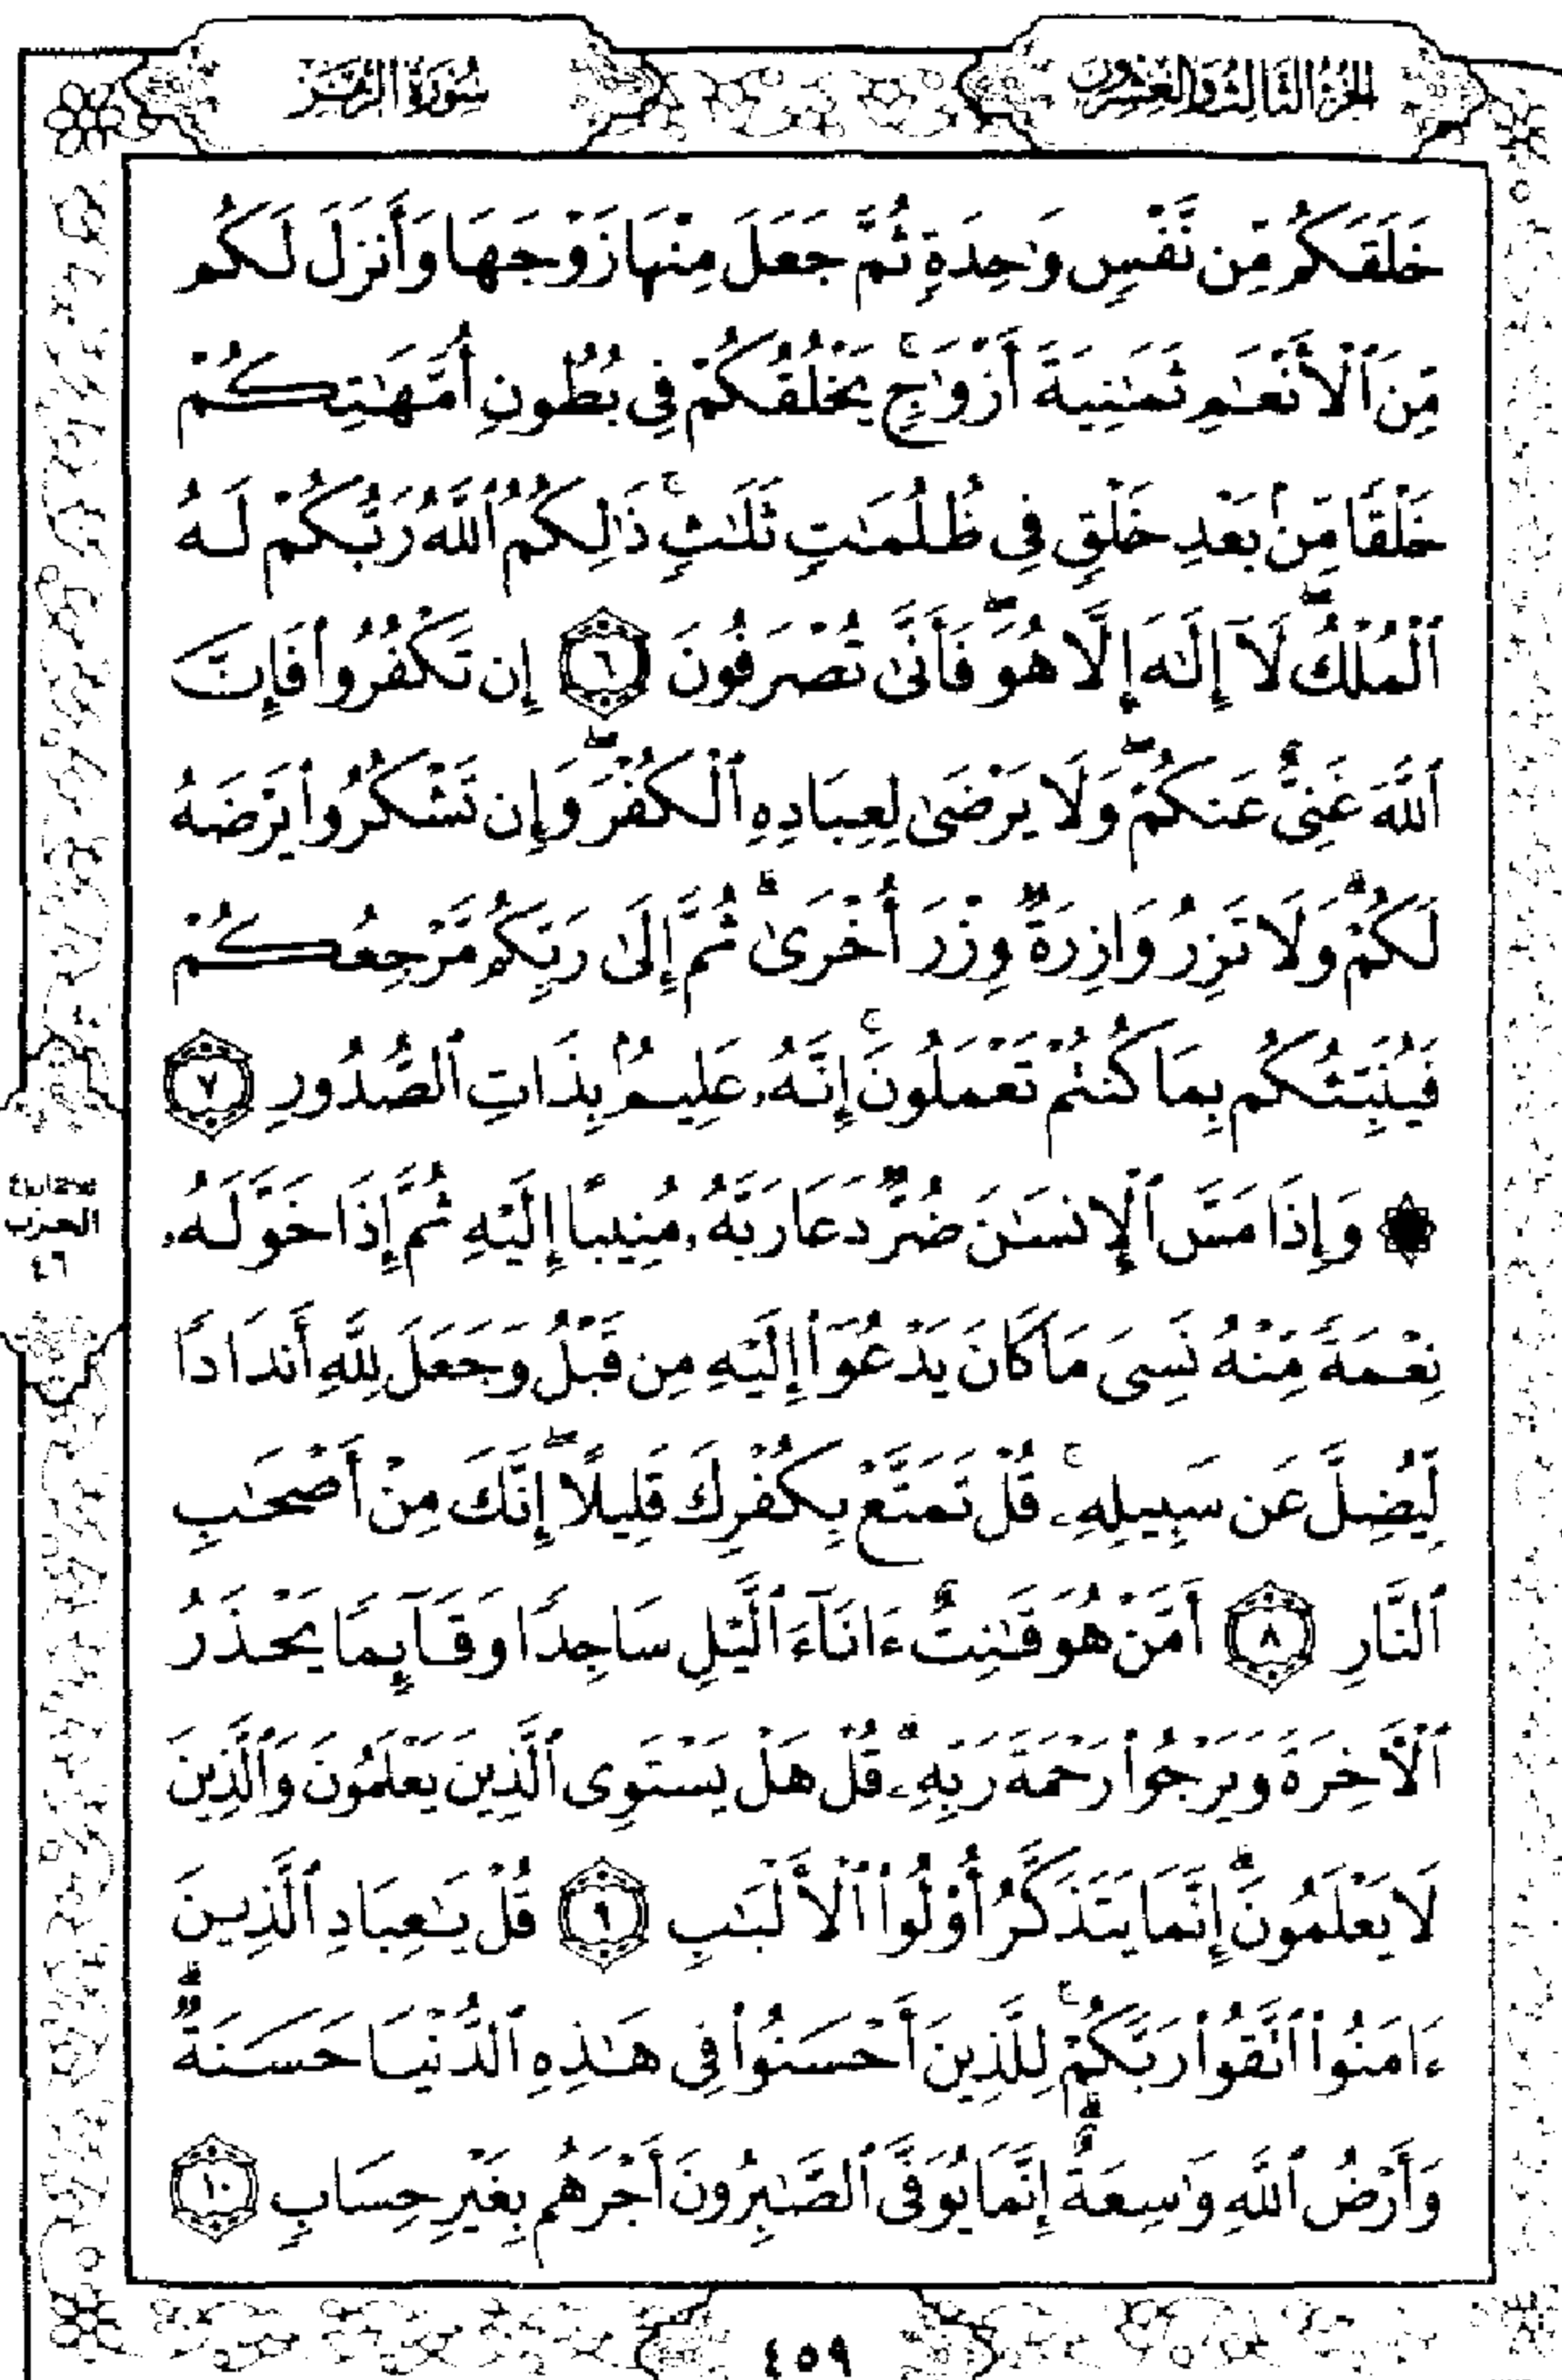 الجزء الثالث والعشرون
سورة الزمر
خَلَقَكُم مِّن نَّفْسٍ وَٰحِدَةٍ ثُمَّ جَعَلَ مِنْهَا زَوْجَهَا وَأَنزَلَ لَكُم
مِّنَ ٱلْأَنْعَـٰمِ ثَمَـٰنِيَةَ أَزْوَٰجٍ ۚ يَخْلُقُكُمْ فِى بُطُونِ أُمَّهَـٰتِكُمْ
خَلْقًا مِّنۢ بَعْدِ خَلْقٍ فِى ظُلُمَـٰتٍ ثَلَـٰثٍ ۚ ذَٰلِكُمُ ٱللَّهُ رَبُّكُمْ لَهُ
ٱلْمُلْكُ ۖ لَآ إِلَـٰهَ إِلَّا هُوَ ۖ فَأَنَّىٰ تُصْرَفُونَ ٦ إِن تَكْفُرُوا۟ فَإِنَّ
ٱللَّهَ غَنِىٌّ عَنكُمْ ۖ وَلَا يَرْضَىٰ لِعِبَادِهِ ٱلْكُفْرَ ۖ وَإِن تَشْكُرُوا۟ يَرْضَهُ
لَكُمْ ۗ وَلَا تَزِرُ وَازِرَةٌ وِزْرَ أُخْرَىٰ ۗ ثُمَّ إِلَىٰ رَبِّكُم مَّرْجِعُكُمْ
فَيُنَبِّئُكُم بِمَا كُنتُمْ تَعْمَلُونَ ۚ إِنَّهُۥ عَلِيمٌۢ بِذَاتِ ٱلصُّدُورِ ٧
۞ وَإِذَا مَسَّ ٱلْإِنسَـٰنَ ضُرٌّ دَعَا رَبَّهُۥ مُنِيبًا إِلَيْهِ ثُمَّ إِذَا خَوَّلَهُۥ
نِعْمَةً مِّنْهُ نَسِىَ مَا كَانَ يَدْعُوٓا۟ إِلَيْهِ مِن قَبْلُ وَجَعَلَ لِلَّهِ أَندَادًا
لِّيُضِلَّ عَن سَبِيلِهِۦ ۚ قُلْ تَمَتَّعْ بِكُفْرِكَ قَلِيلًا ۖ إِنَّكَ مِنْ أَصْحَـٰبِ
ٱلنَّارِ ٨ أَمَّنْ هُوَ قَـٰنِتٌ ءَانَآءَ ٱلَّيْلِ سَاجِدًا وَقَآئِمًا يَحْذَرُ
ٱلْـَٔاخِرَةَ وَيَرْجُوا۟ رَحْمَةَ رَبِّهِۦ ۗ قُلْ هَلْ يَسْتَوِى ٱلَّذِينَ يَعْلَمُونَ وَٱلَّذِينَ
لَا يَعْلَمُونَ ۗ إِنَّمَا يَتَذَكَّرُ أُو۟لُوا۟ ٱلْأَلْبَـٰبِ ٩ قُلْ يَـٰعِبَادِ ٱلَّذِينَ
ءَامَنُوا۟ ٱتَّقُوا۟ رَبَّكُمْ ۚ لِلَّذِينَ أَحْسَنُوا۟ فِى هَـٰذِهِ ٱلدُّنْيَا حَسَنَةٌ ۗ
وَأَرْضُ ٱللَّهِ وَٰسِعَةٌ ۗ إِنَّمَا يُوَفَّى ٱلصَّـٰبِرُونَ أَجْرَهُم بِغَيْرِ حِسَابٍ ١٠
الحزب
٤٦
٤٥٩